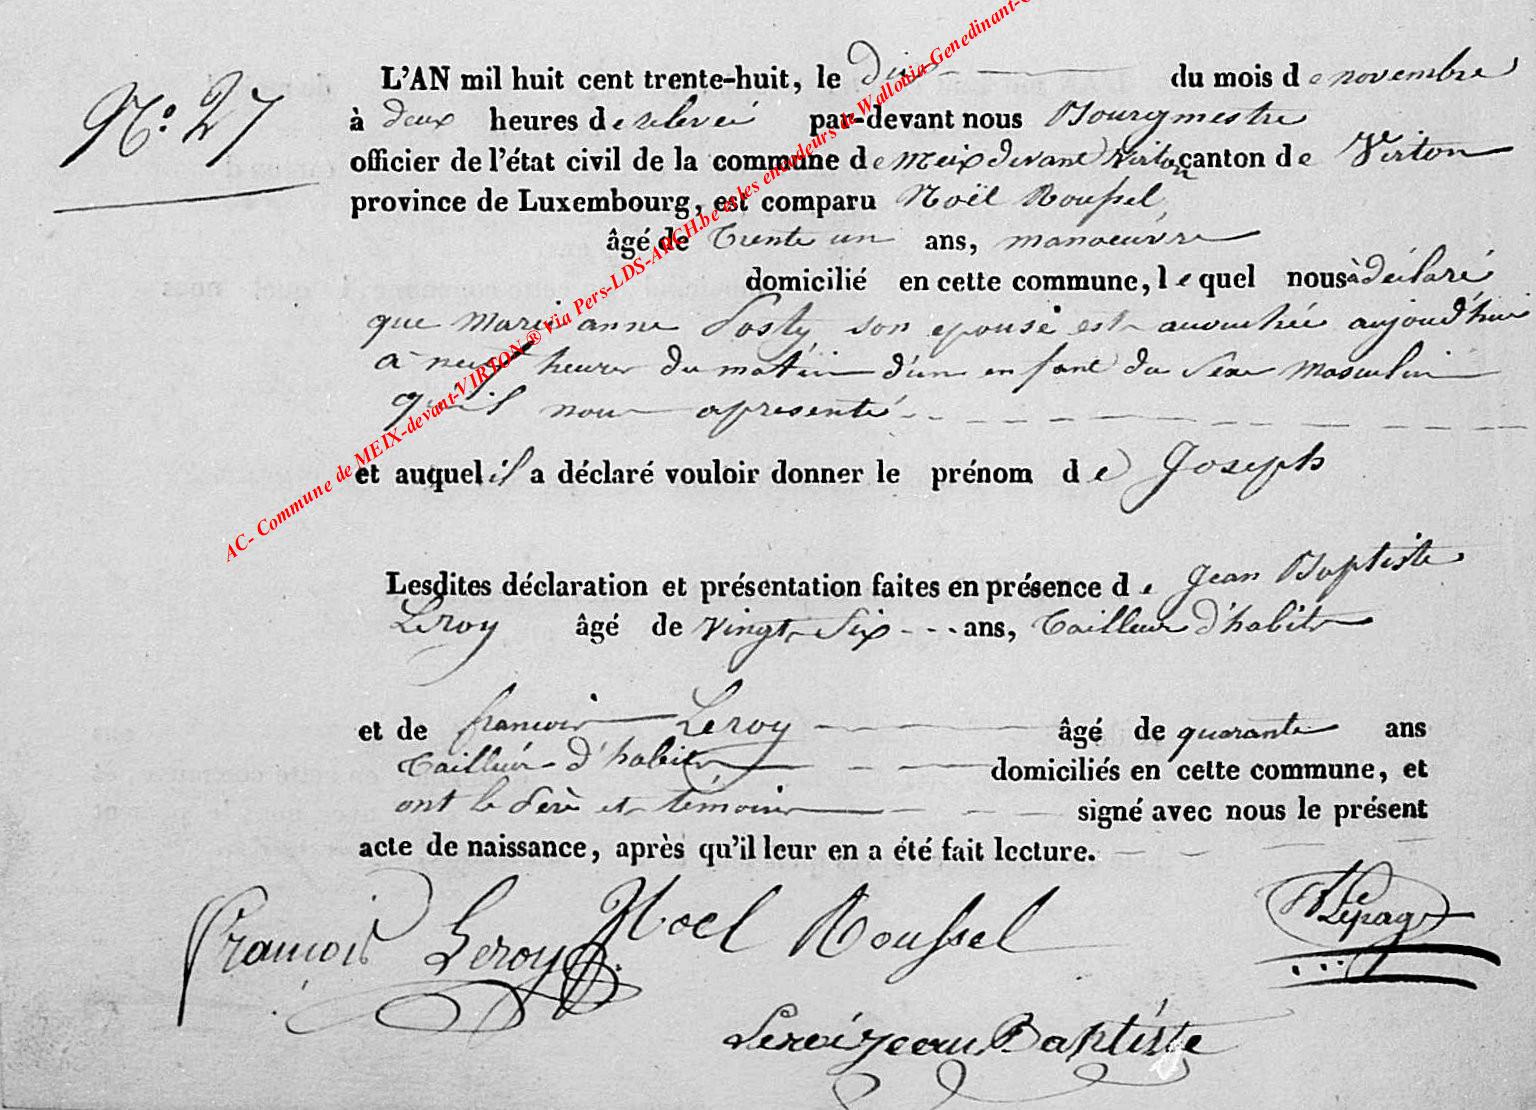 N.º 27
L'AN mil huit cent trente-huit, le dix du mois de novembre
à deux heures de relevée par-devant nous Bourgmestre
officier de l'état civil de la commune de Meix devant Virton canton de Virton
province de Luxembourg, est comparu Noël Roussel
âgé de trente un ans, manoeuvre
domicilié en cette commune, le quel nous à déclaré
que Marie anne son epouse est accouchée aujourd'hui
à neuf heures du matin d'un enfant du sexe masculin
qu'il nous a presenté
et auquel il a déclaré vouloir donner le prénom de Joseph
Lesdites déclaration et présentation faites en présence de Jean Baptiste
Leroy âgé de vingt six ans, Tailleur d'habits
et de francois Leroy âgé de quarante ans
Tailleur d'habits domiciliés en cette commune, et
ont le père et témoins signé avec nous le présent
acte de naissance, après qu'il leur en a été fait lecture.
François Leroy Noel Roussel Lepage
Leroi jean Baptiste
AC- Commune de MEIX-devant-VIRTON ® Via Pers-LDS-ARCH.be et les encodeurs de Wallonia-Genedinant-